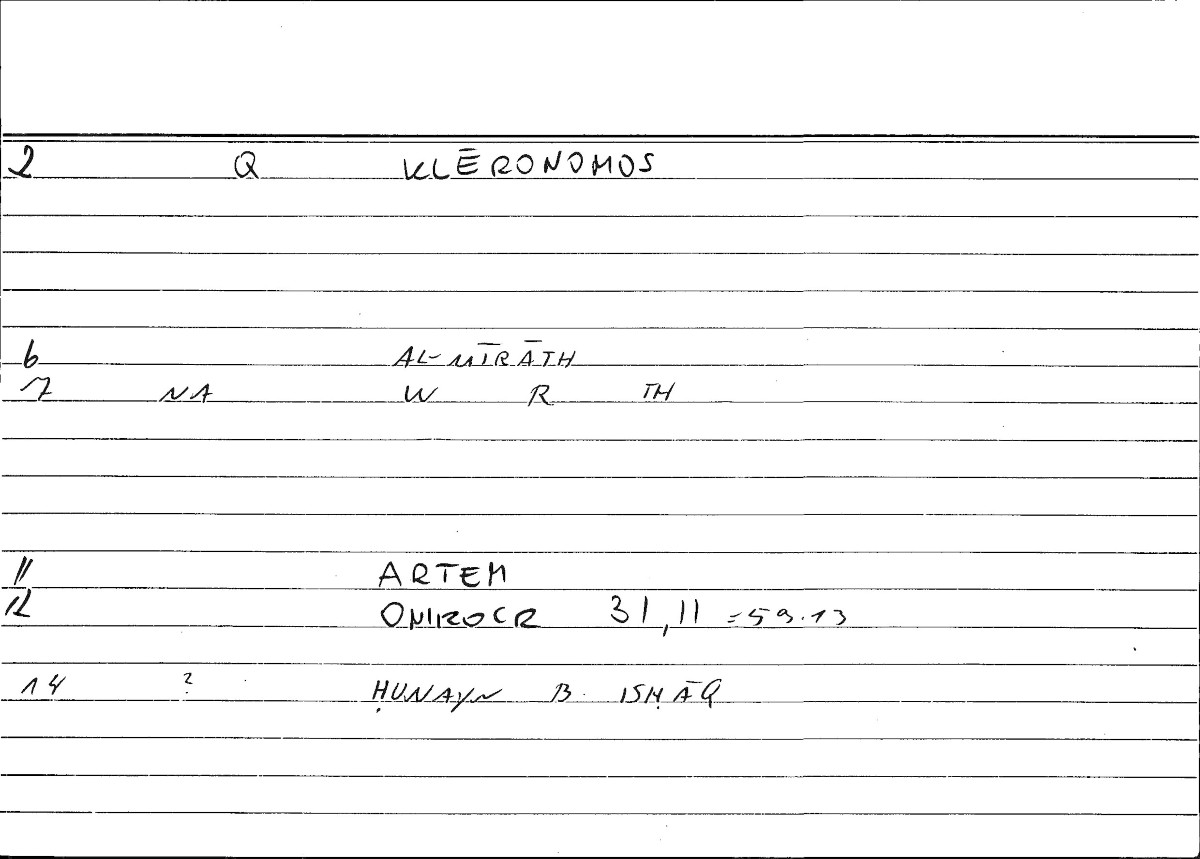 2 Q KLĒRONOMOS
6 AL-MĪRĀTH
7 NA W R TH
11 ARTEM
12 ONIROCR 31,11 =59.13
14 ? ḤUNAYN B. ISḤĀQ